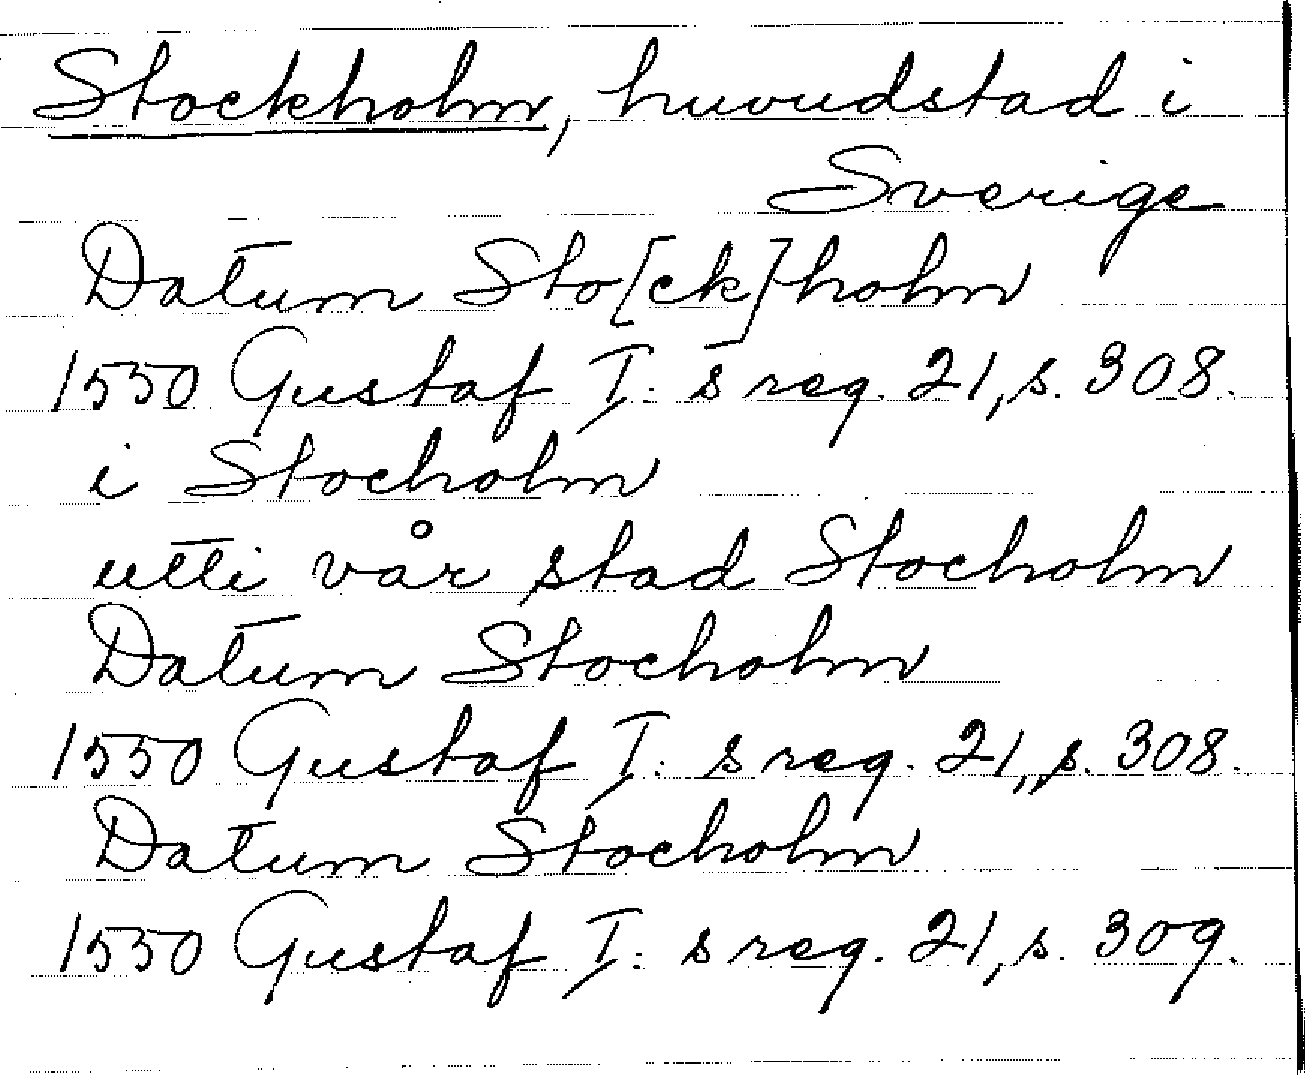 Stockholm, huvudstad i
Sverige
Datum Sto[ck]holm
1550 Gustaf I:s reg. 21, s. 308.
i Stocholm
utti vår stad Stocholm
Datum Stocholm
1550 Gustaf I:s reg. 21, s. 308.
Datum Stocholm
1550 Gustaf I:s reg. 21, s. 309.